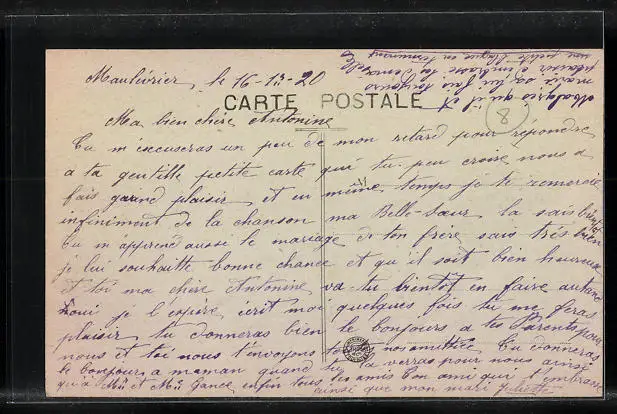 Maulévrier, le 16-12-20
CARTE POSTALE
8
Ma bien chère Antonine
Tu m'éxcuseras un peu de mon retard pour répondre
a ta gentille petite carte qui tu peu croire nous a
fais guand plaisir et en même temps je te remercie
infiniment de la chanson ma Belle-Sœur la sais bientot
Tu m'apprend aussi le mariage de ton frère sais très bien
je lui souhaitte bonne chance et qu'il soit bien heureux
et toi ma chère Antonine va-tu bientôt en faire autant
Loui je l'éspère écrit moi quelques fois tu me feras
plaisir tu donneras bien le bonjours a tes Parents pour
nous et toi nous t'envoyons nos amittiée Tu donneras
le bonjours a maman quand tu la verras pour nous ainsi
qu'à et Gance enfin tous tes amis Ton amie qui t'embrasse
ainsi que mon mari Juliette
Malgrés qu'il et
marié sa lui fais toujours
plaisir d'embrassé les Demoiselle
une petite blague en terminant